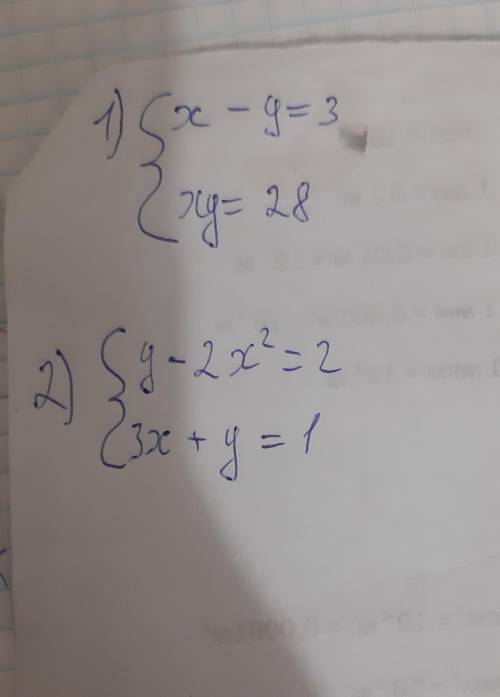 1) { x - y = 3
xy = 28
2) { y - 2x² = 2
3x + y = 1